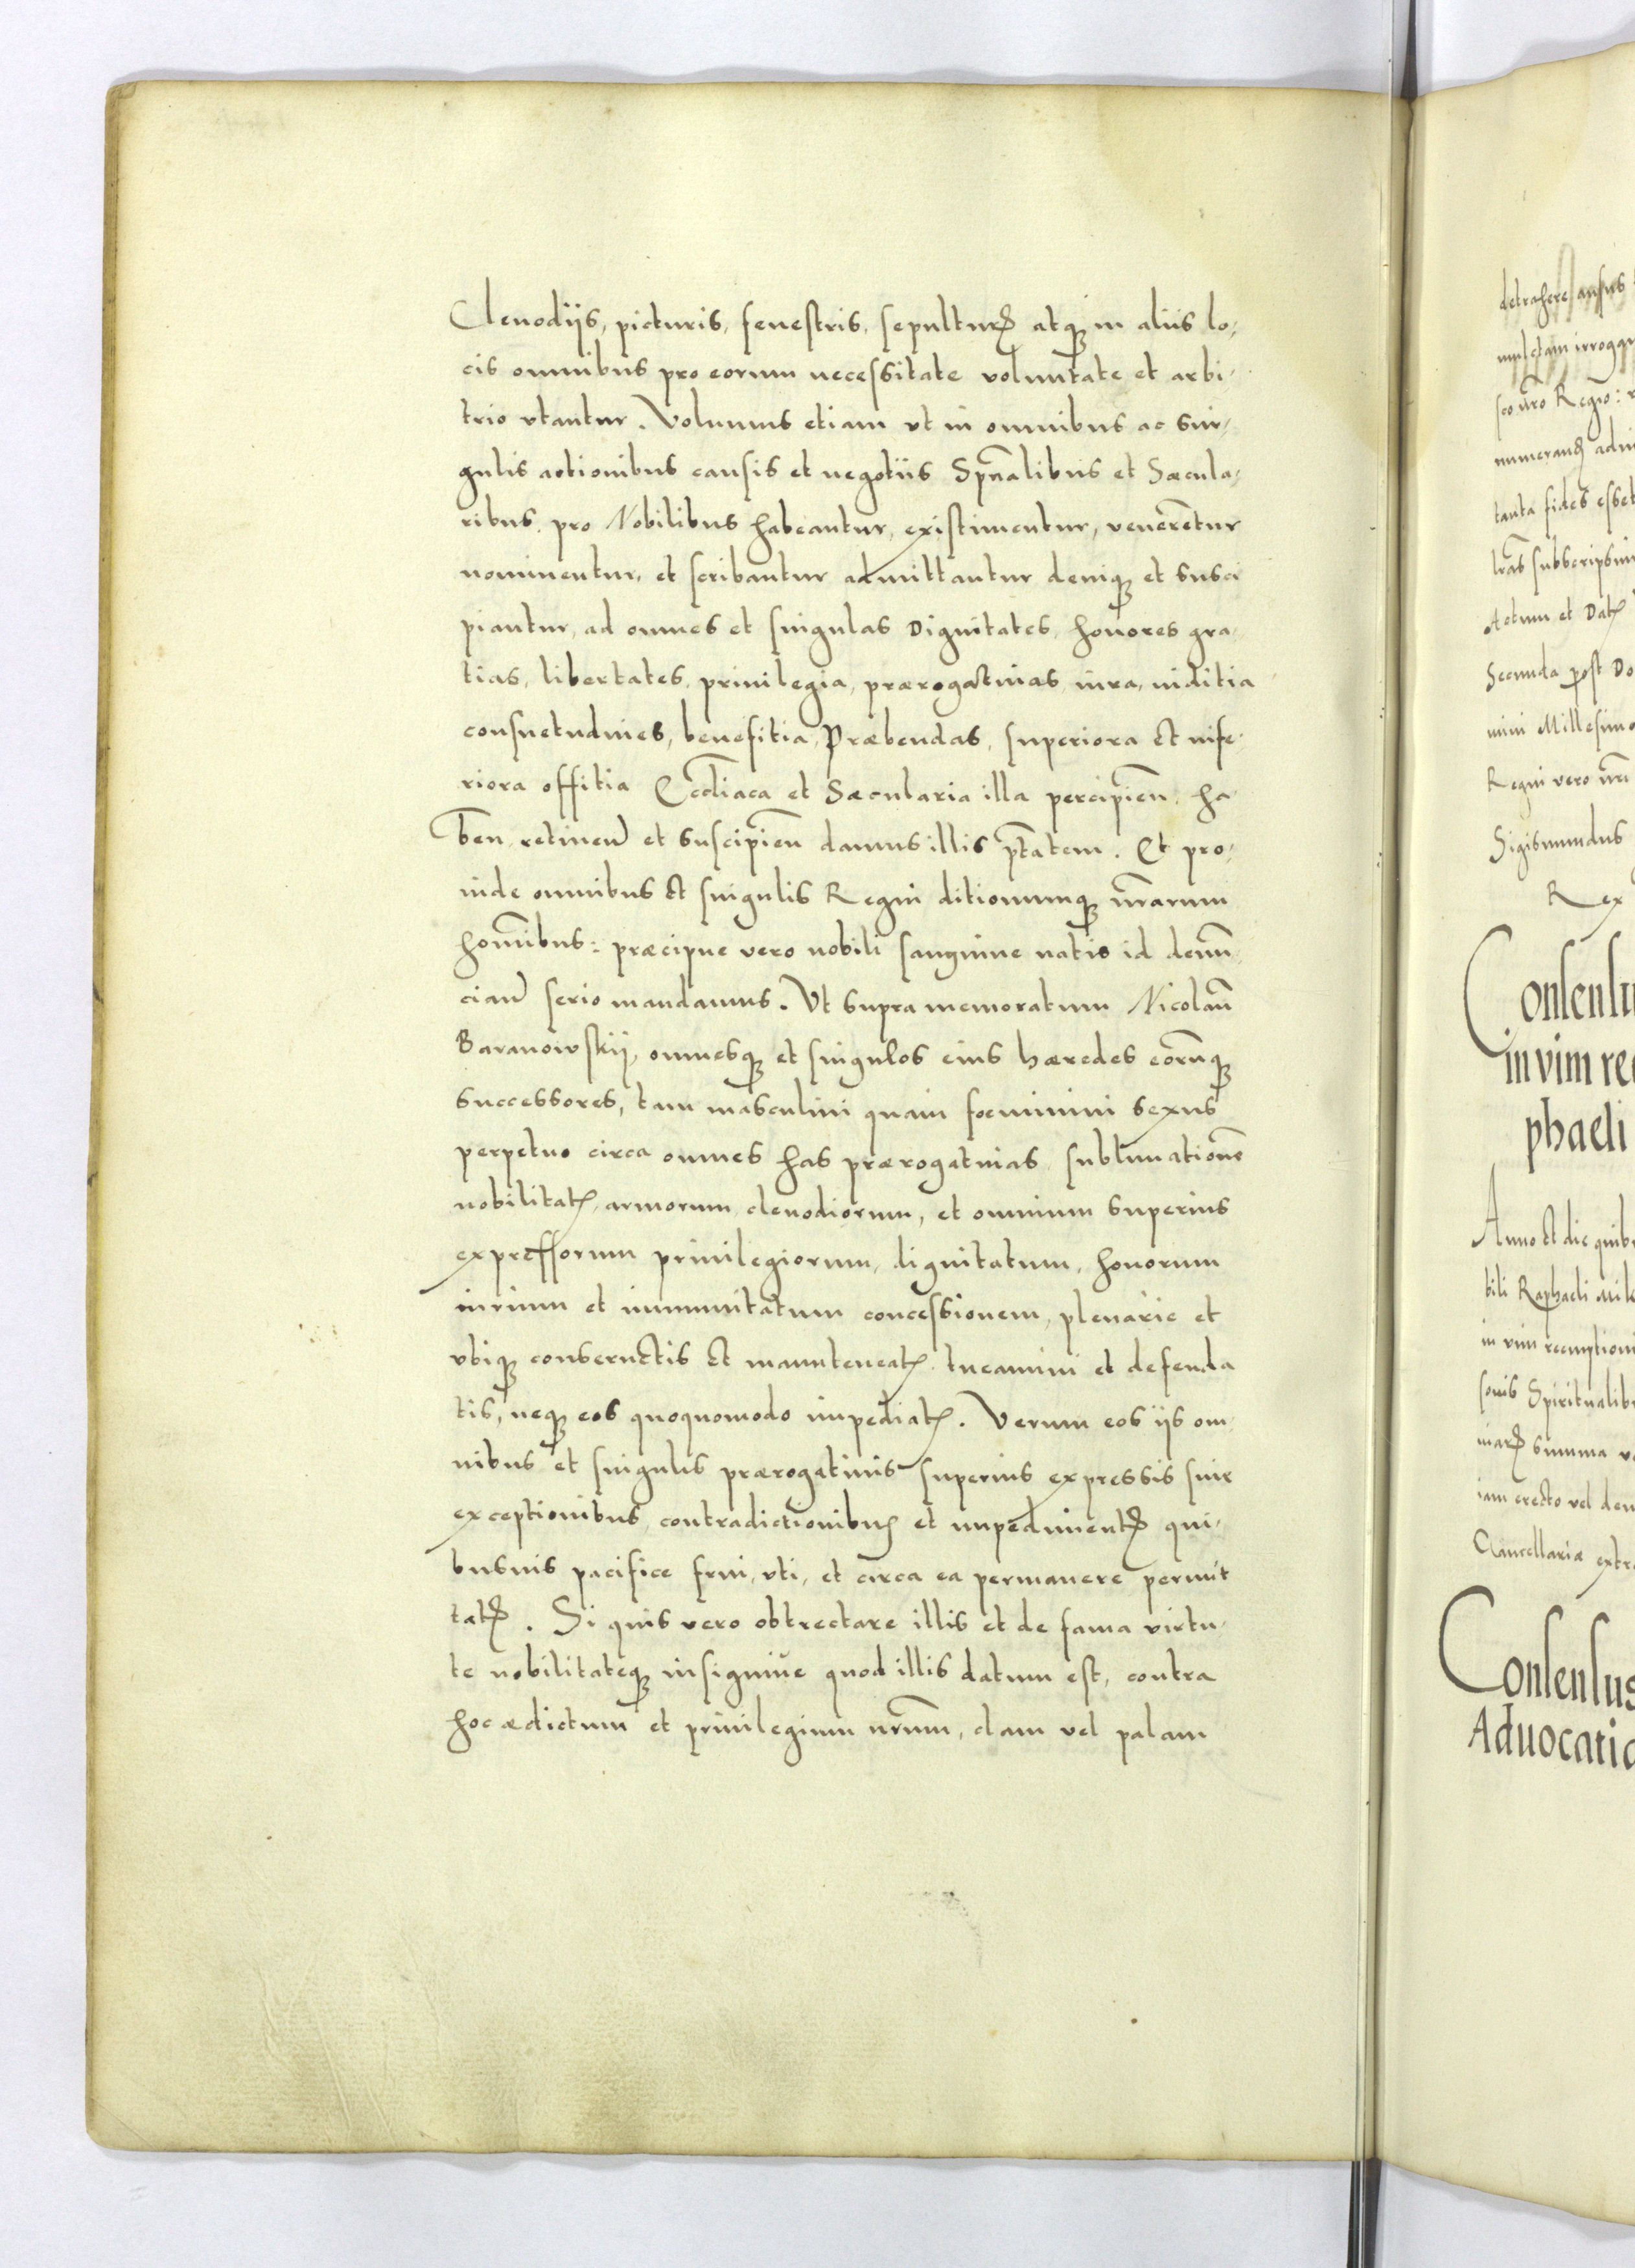 Clenodijs, picturis, fenestris, sepulturꝭ atqꝫ in aliis lo-
cis omnibus pro eorum necessitate voluntate et arbi-
trio vtantur. Volumus etiam vt in omnibus ac sin-
gulis actionibus causis et negotiis Spũalibus et Sæcula-
ribus, pro Nobilibus habeantur, existimentur, venerētur
nominentur, et scribantur admittantur deniqꝫ et susci
piantur, ad omnes et singulas Dignitates, honores gra-
tias, libertates, priuilegia, prærogatiuas, iura, inditia
consuetudines, benefitia, Præbendas, superiora et infe-
riora offitia Eccl̃iaca et Sæcularia illa percipieñ, ha-
beñ, retineñ et suscipieñ damus illis pt̃atem. Et pro-
inde omnibus et singulis Regni ditionumqꝫ nr̃arum
homĩbus: præcipue vero nobili sanguine natis id denũ-
ciañ serio mandamus. Vt supra memoratum Nicolaũ
Baranowskij, omnesqꝫ et singulos eius hæredes eorũqꝫ
successores, tam masculini quam foeminini sexus
perpetuo circa omnes has prærogatiuas, sublimationē
nobilitatꝭ, armorum clenodiorum, et omnium superius
expressorum priuilegiorum, dignitatum, honorum
iurium et immunitatum concessionem, plenarie et
vbiqꝫ conseruetis et manuteneatꝭ, tueamini et defenda
tis, neqꝫ eos quoquomodo impediatꝭ. Verum eos ijs om-
nibus et singulis prærogatiuis superius expressis sine
exceptionibus, contradictionibus et impedimentꝭ qui-
busuis pacifice frui, vti, et circa ea permanere permit
tatꝭ. Si quis vero obtrectare illis et de fama virtu-
te nobilitateqꝫ insigniue quod illis datum est, contra
hoc ædictum et priuilegium nr̃um, clam vel palam
detrahere ausus
mulctam irrogqu
sco nr̃o Regio:
numerandꝭ
tanta fides esset
Actum et Datꝭ
Secunda post Do
mini Millesimo
Regni vero nr̃i
Sigismundus
Rex
Consensu
in vim re
phaeli
Anno et die quib
bili Raphaeli
in vim reemptioni
Spiritualib
summa
iam erecto vel
Cancellariæ extra
Consensus
Aduocatia